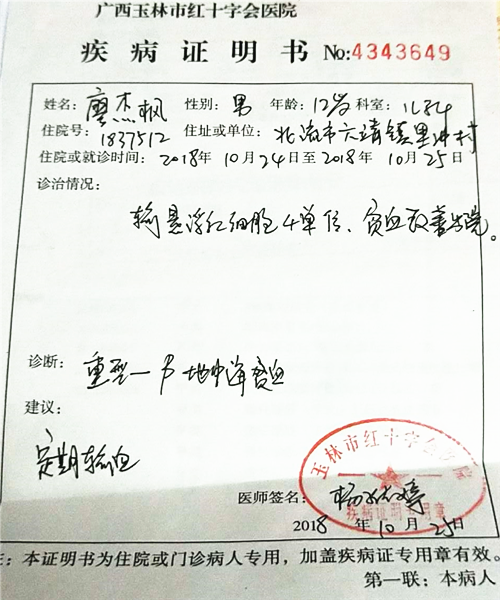 广西玉林市红十字会医院
疾病证明书 No:4343649
姓名: 廖杰枫 性别: 男 年龄: 12岁 科室: 儿科
住院号: 1837512 住址或单位: 北流市六靖镇里冲村
住院或就诊时间: 2018年10月24日至2018年10月25日
诊治情况:
输悬浮红细胞4单位、贫血改善出院。
诊断: 重型-β地中海贫血
建议:
定期输血
玉林市红十字会医院
疾病证明专用章
医师签名: 杨
2018年10月25日
注: 本证明书为住院或门诊病人专用,加盖疾病证专用章有效。
第一联: 本病人